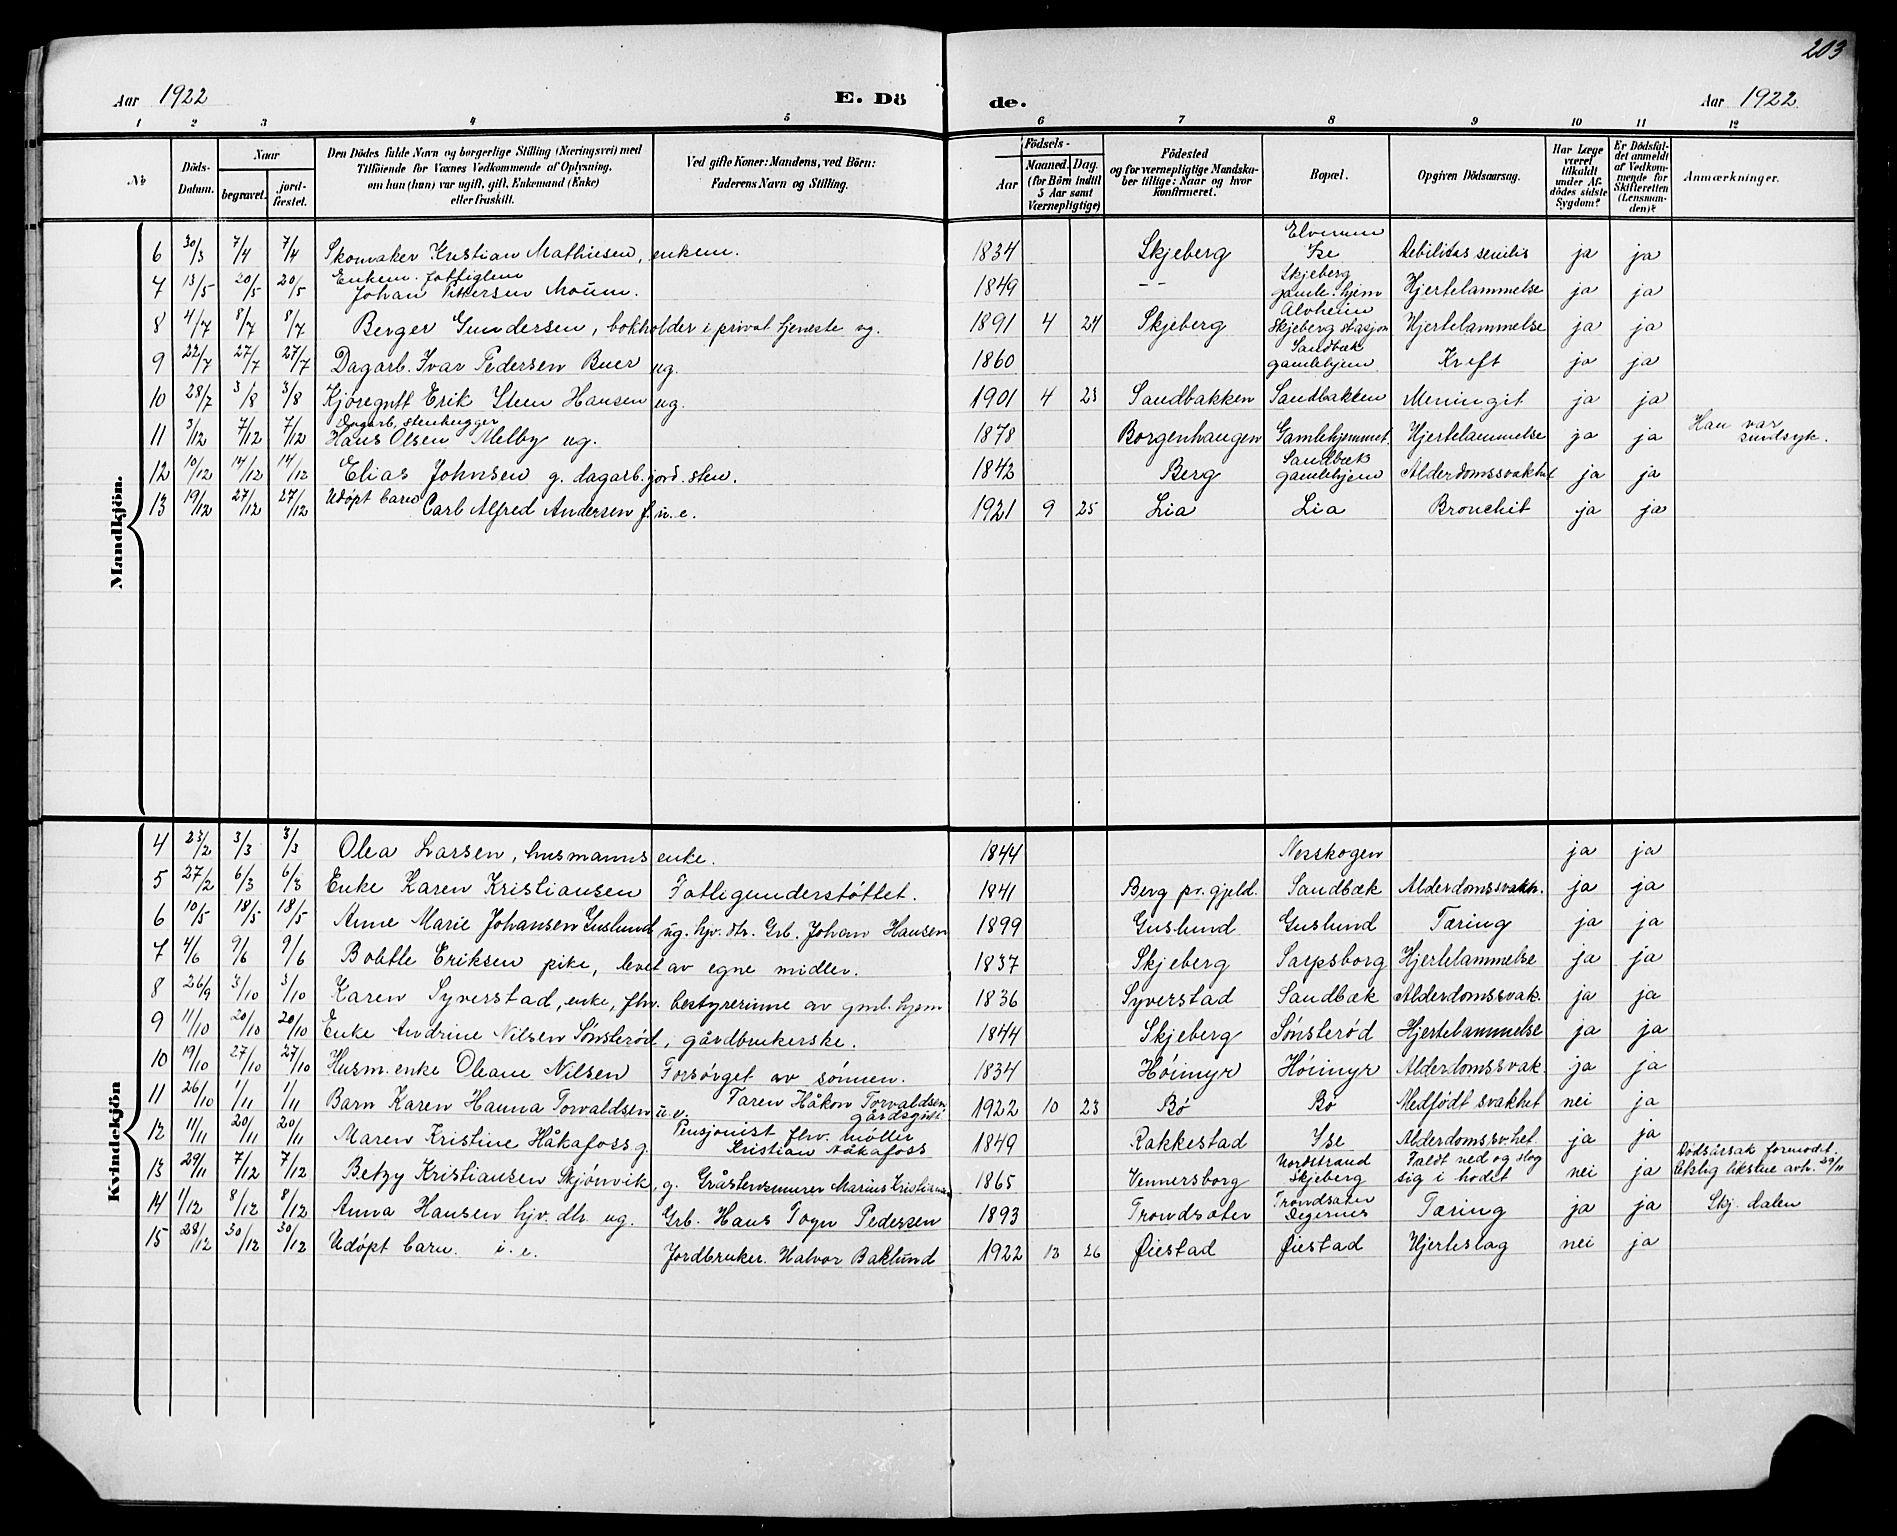 203
Aar 1922 E. Dö de. Aar 1922
1 2 3 4 5 6 7 8 9 10 11 12
No Döds-Datum. Naar begravet. jord-fæstet. Den Dödes fulde Navn og borgerlige Stilling (Næringsvei) med Tilföiende for Voxnes Vedkommende af Oplysning, om hun (han) var ugift, gift, Enkemand (Enke) eller fraskilt. Ved gifte Koner: Mandens, ved Börn: Faderens Navn og Stilling. Födsels- Aar Maaned. Dag. (for Börn indtil 5 Aar samt Værnepligtige) Födested og for værnepligtige Mandska-ber tillige: Naar og hvor konfirmeret. Bopæl. Opgiven Dödsaarsag. Har Læge været tilkaldt under Af-dödes sidste Sygdom? Er Dödsfal-det anmeldt af Vedkom-mende for Skifteretten (Lensman-den)? Anmærkninger.
Mandkjön.
6 30/3 7/4 7/4 Skomaker Kristian Mathiesen, enkem. 1834 Skjeberg Elverum Ise Debilitas senilis ja ja
7 13/5 20/5 20/5 Enkem. fattiglem Johan Pettersen Moum. 1849 -- Skjeberg gamle.hjem Hjertelammelse ja ja
8 4/7 8/7 8/7 Berger Gundersen, bokholder i privat tjeneste ug. 1891 4 24 Skjeberg Alvheim Skjeberg stasjon Hjertelammelse ja ja
9 22/7 27/7 27/7 Dagarb. Ivar Pedersen Buer ug. 1860 Sandbæk gamlehjem Kreft ja ja
10 28/7 3/8 3/8 Kjøregutt Erik Steen Hansen ug. 1901 4 23 Sandbakken Sandbakken Meningit ja ja
11 3/12 7/12 7/12 Dagarb. stenhugger Hans Olsen Melby ug. 1878 Borgenhaugen Gamlehjemmet. Hjertelammelse ja ja Han var sindsyk.
12 10/12 14/12 14/12 Elias Johnsen g. dagarb. jord. sten. 1842 Berg Sandbæk gamlehjem Alderdomssvakhet ja ja
13 19/12 27/12 27/12 Udøpt barn Carl Alfred Andersen f. u. e. 1921 9 25 Lia Lia Bronchit ja ja
Kvindekjön
4 23/2 3/3 3/3 Olea Larsen, husmanns enke. 1844 Nesskogen ja ja
5 27/2 6/3 6/3 Enke Karen Kristiansen Fattigunderstøttet. 1841 Berg pr.gjeld. Sandbæk Alderdomssvakh. ja ja
6 10/5 18/5 18/5 Anne Marie Johansen Guslund ug. hjv. dtr. Grb. Johan Hansen 1899 Guslund Guslund Tæring ja ja
7 4/6 9/6 9/6 Bolette Eriksen pike, levet av egne midler. 1837 Skjeberg Sarpsborg Hjertelammelse ja ja
8 26/9 3/10 3/10 Karen Syverstad, enke, fhv. bestyrerinne av gml.hjem 1836 Syverstad Sandbæk Alderdomssvak. ja ja
9 11/10 20/10 20/10 Enke Andrine Nilsen Sønsterød, gårdbrukerske. 1844 Skjeberg Sønsterød Hjertelammelse ja ja
10 19/10 27/10 27/10 Husm.enke Oleane Nilsen Forsørget av sønnen. 1834 Høimyr Høimyr Alderdomssvak. ja ja
11 26/10 1/11 1/11 Barn Karen Hanna Torvaldsen u. e. Faren Håkon Torvaldsen gårdsgutt 1922 10 23 Bø Bø Medfødt svakhet nei ja
12 11/11 20/11 20/11 Maren Kristine Håkafoss g. Pensjonist fhv. møller Kristian Håkafoss 1849 Rakkestad Ise Alderdomssv.het ja ja
13 29/11 7/12 7/12 Betzy Kristiansen Skjønvik, g. Gråstensmurer Marius Kristiansen 1865 Vennersborg Nordstrand Skjeberg Faldt ned og slog sig i hodet nei ja Dødsårsak formodet. avh. 29/11
14 1/12 8/12 8/12 Anna Hansen hjv. dtr. ug. Grb. Hans Togn Pedersen 1893 Trondsæter Trondsæter Degernes Tæring ja ja Skj. dalen
15 28/12 30/12 30/12 Udøpt barn. i. e. Jordbruker. Halvor Baklund 1922 12 26 Øiestad Øiestad Hjerteslag nei ja